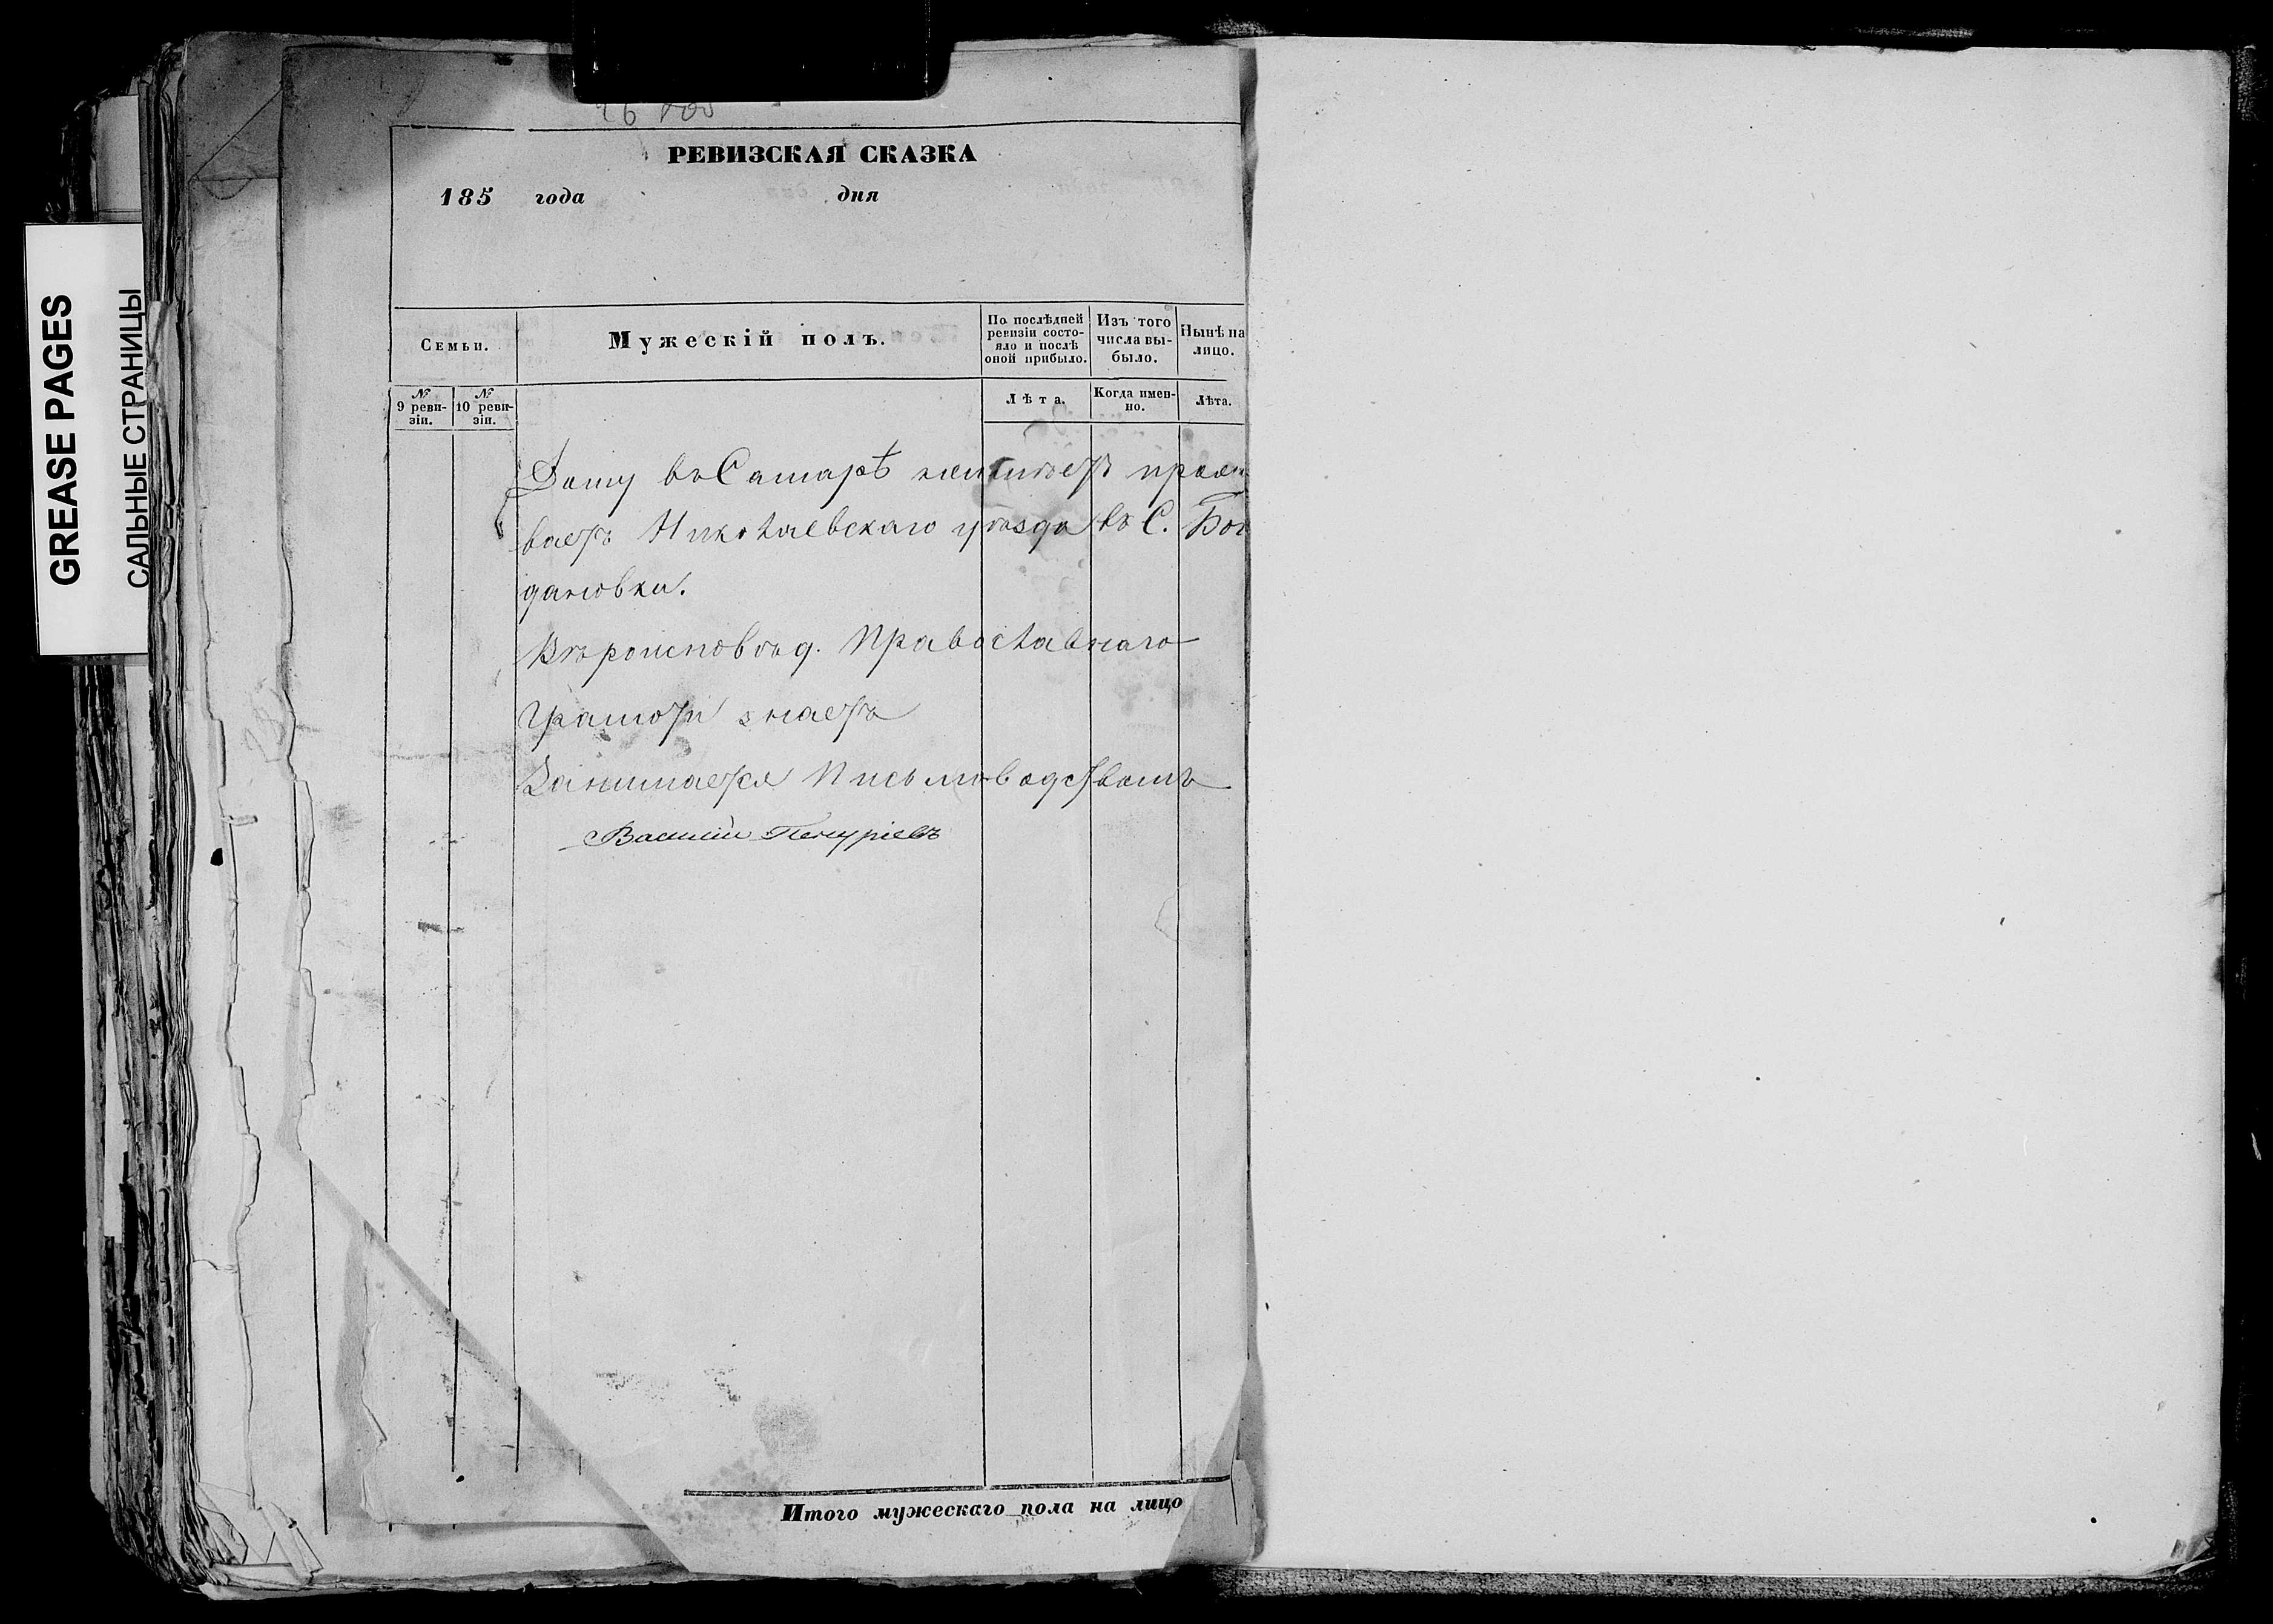 GREASE PAGES
САЛЬНЫЕ СТРАНИЦЫ
РЕВИЗСКАЯ СКАЗКА
185 года дня
Семьи.
Мужескій полъ.
По послѣдней ревизіи состояло и послѣ оной прибыло.
Изъ того числа выбыло.
Нынѣ на лицо.
№ 9 ревизіи.
№ 10 ревизіи.
Лѣта.
Когда именно.
Лѣта.
Дому въ Самарѣ неимѣетъ прожи
ваетъ Николаевскаго уѣзда въ С. Бог
дановки.
Вѣроисповѣд. Православнаго
Грамоти знаетъ
Занимается Письмоводствомъ
Василий
Итого мужескаго пола на лицо